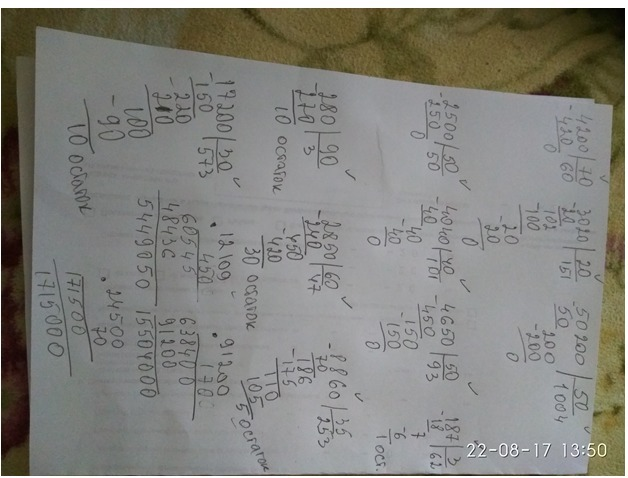 -4200|70
420|60
0
3020|20
-20|151
102
-100
-20
20
0
-50200|50
50|1004
200
-200
0
-2500|50
250|50
0
-4040|40
40|101
-40
40
0
4650|50
-450|93
-150
150
0
-187|3
18|62
7
-6
1 ост.
-280|90
270|3
10 остаток
-2850|60
240|47
-450
420
30 остаток
-8860|35
70|253
186
-175
110
105
5 остаток
17200|30
-150|573
-220
210
100
-90
10 остаток
12109
450
60545
48436
5449050
91200
170
638400
91200
15504000
24500
70
171500
1715000
22-08-17 13:50